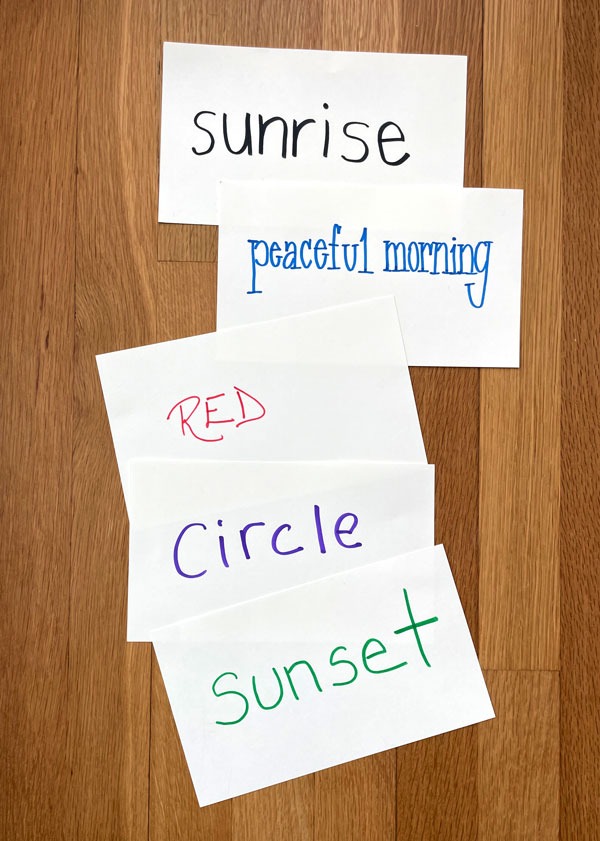 sunrise
peaceful morning
RED
Circle
Sunset